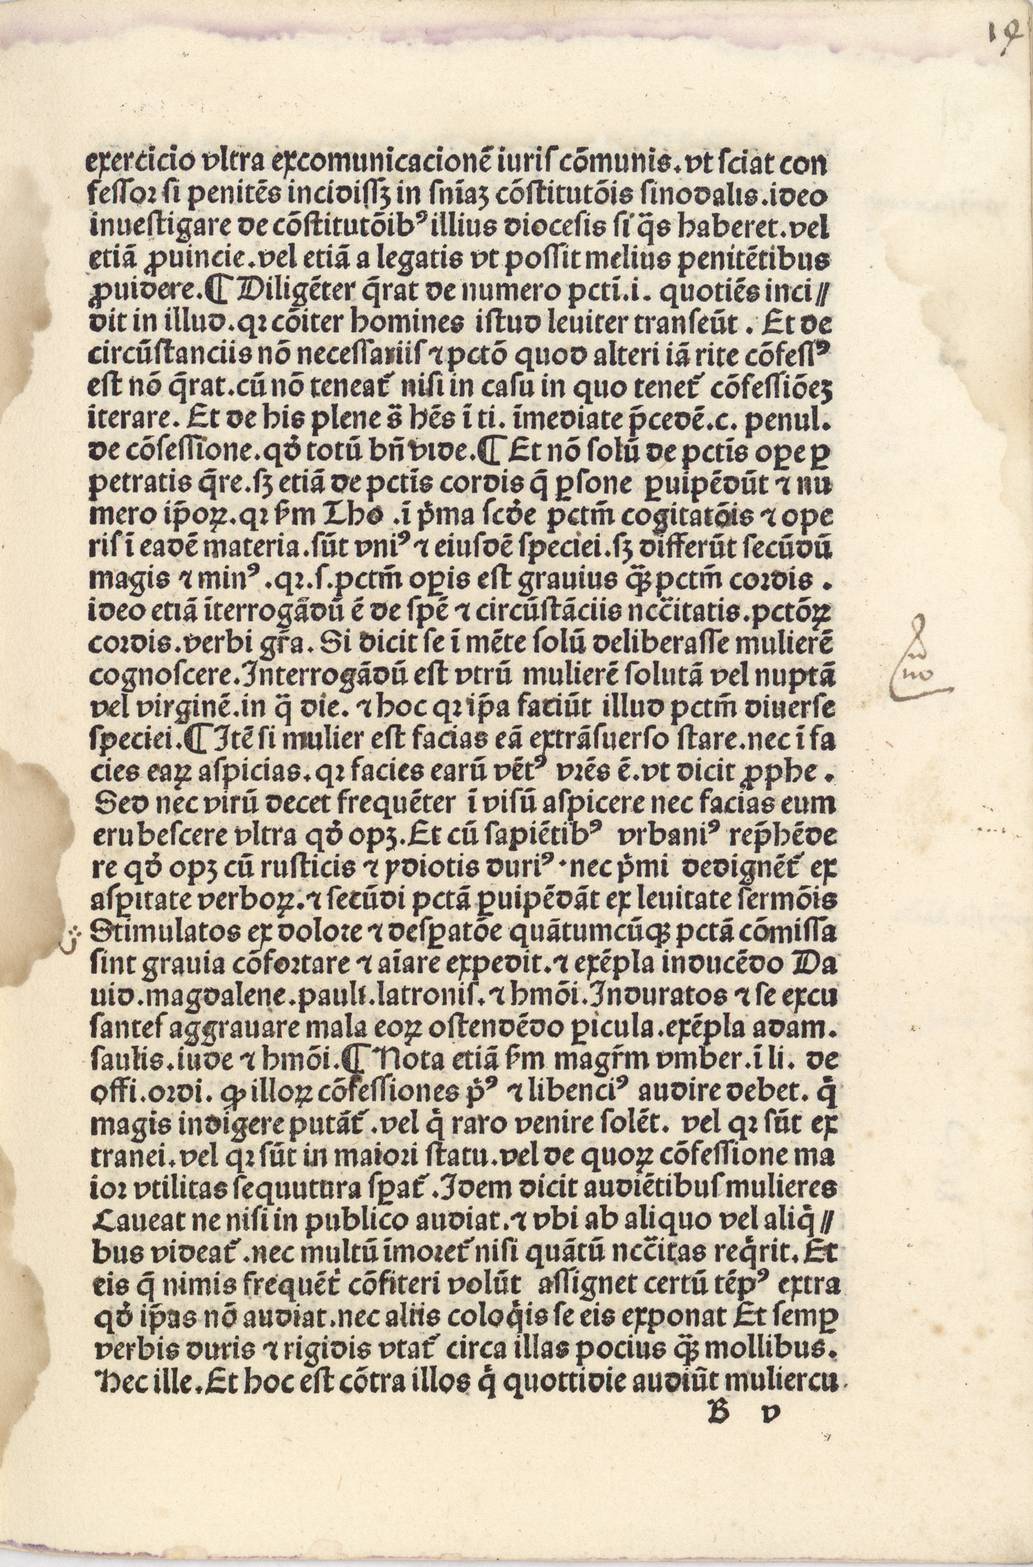 19
exercicio vltra excomunicacionē iuris cōmunis.vt sciat con
fessor si penitēs incidissꝫ in sn̄iaꝫ cōstitutōis sinodalis.ideo
inuestigare de cōstitutōibꝰ illius diocesis si q̄s haberet.vel
etiā ꝓuincie.vel etiā a legatis vt possit melius penitētibus
ꝓuidere.¶ Diligēter q̄rat de numero pcti̅.i. quotiēs inci⸗
dit in illud.qꝛ cōiter homines istud leuiter transeūt . Et de
circūstanciis nō necessariis ⁊ pctō quod alteri iā rite cōfessꝰ
est nō q̄rat.cū nō teneat᷑ nisi in casu in quo tenet᷑ cōfessiōeꝫ
iterare. Et de his plene s̄ hēs ī ti. īmediate p̄cedē.c. penul.
de cōfessione.qď totū bn̄ vide.¶ Et nō solū de pctīs oꝑe ꝑ
petratis q̄re.sꝫ etiā de pctīs cordis q̄ ꝑsone ꝑuipēdūt ⁊ nu
mero ip̄oꝝ.qꝛ ẜm Tho .ī pͥma scďe pctm̄ cogitatōis ⁊ ope
ris ī eadē materia.sūt vniꝰ ⁊ eiusdē speciei.sꝫ differūt secūdū
magis ⁊ minꝰ .qꝛ.s.pctm̄ oꝑis est grauius qꝫ̄ pctm̄ cordis .
ideo etiā īterrogādū ē de spē ⁊ circūstāciis ncc̄itatis.pctōꝝ
cordis.verbi gr̄a. Si dicit se ī mēte solū deliberasse mulierē
cognoscere.Interrogādū est vtrū mulierē solutā vel nuptā
vel virginē.in q̄ die. ⁊ hoc qꝛ ip̄a faciūt illud pctm̄ diuerse
speciei.¶ Itē si mulier est facias eā extrāsuerso stare.nec ī fa
cies eaꝝ aspicias.qꝛ facies earū vētꝰ vrēs ē.vt dicit ꝓphe .
Sed nec virū decet frequēter ī visū aspicere nec facias eum
erubescere vltra qď opꝫ.Et cū sapiētibꝰ vrbaniꝰ rep̄hēde
re qď opꝫ cū rusticis ⁊ ydiotis duriꝰ·nec pͥmi dedignēt᷑ ex
asꝑitate verboꝝ.⁊ secūdi pctā ꝑuipēdāt ex leuitate sermōis
Stimulatos ex dolore ⁊ desꝑatōe quātumcūqꝫ pctā cōmissa
sint grauia cōfortare ⁊ aīare expedit.⁊ exēpla inducēdo Da
uid.magdalene.pauli.latronis.⁊ hmōi.Induratos ⁊ se excu
santes aggrauare mala eoꝝ ostendēdo ꝑicula.exēpla adam.
saulis.iude ⁊ hmōi.¶ Nota etiā ẜm magr̄m vmber.ī li. de
offi.ordi. ꝙ illoꝝ cōfessiones pͥꝰ ⁊ libenciꝰ audire debet. qͥ
magis indigere putāt᷑ .vel qͥ raro venire solēt. vel qꝛ sūt ex
tranei.vel qꝛ sūt in maiori statu.vel de quoꝝ cōfessione ma
ior vtilitas sequutura sꝑat᷑ .Idem dicit audiētibus mulieres
Caueat ne nisi in publico audiat.⁊ vbi ab aliquo vel aliqͥ⸗
bus videat᷑ .nec multū īmoret᷑ nisi quātū ncc̄itas reqͥrit. Et
eis q̄ nimis frequēt᷑ cōfiteri volūt assignet certū tēpꝰ extra
qď ip̄as nō audiat.nec aliis coloqͥis se eis exponat Et semꝑ
verbis duris ⁊ rigidis vtat᷑ circa illas pocius qꝫ̄ mollibus.
Hec ille.Et hoc est cōtra illos qͥ quottidie audiūt muliercu
B v